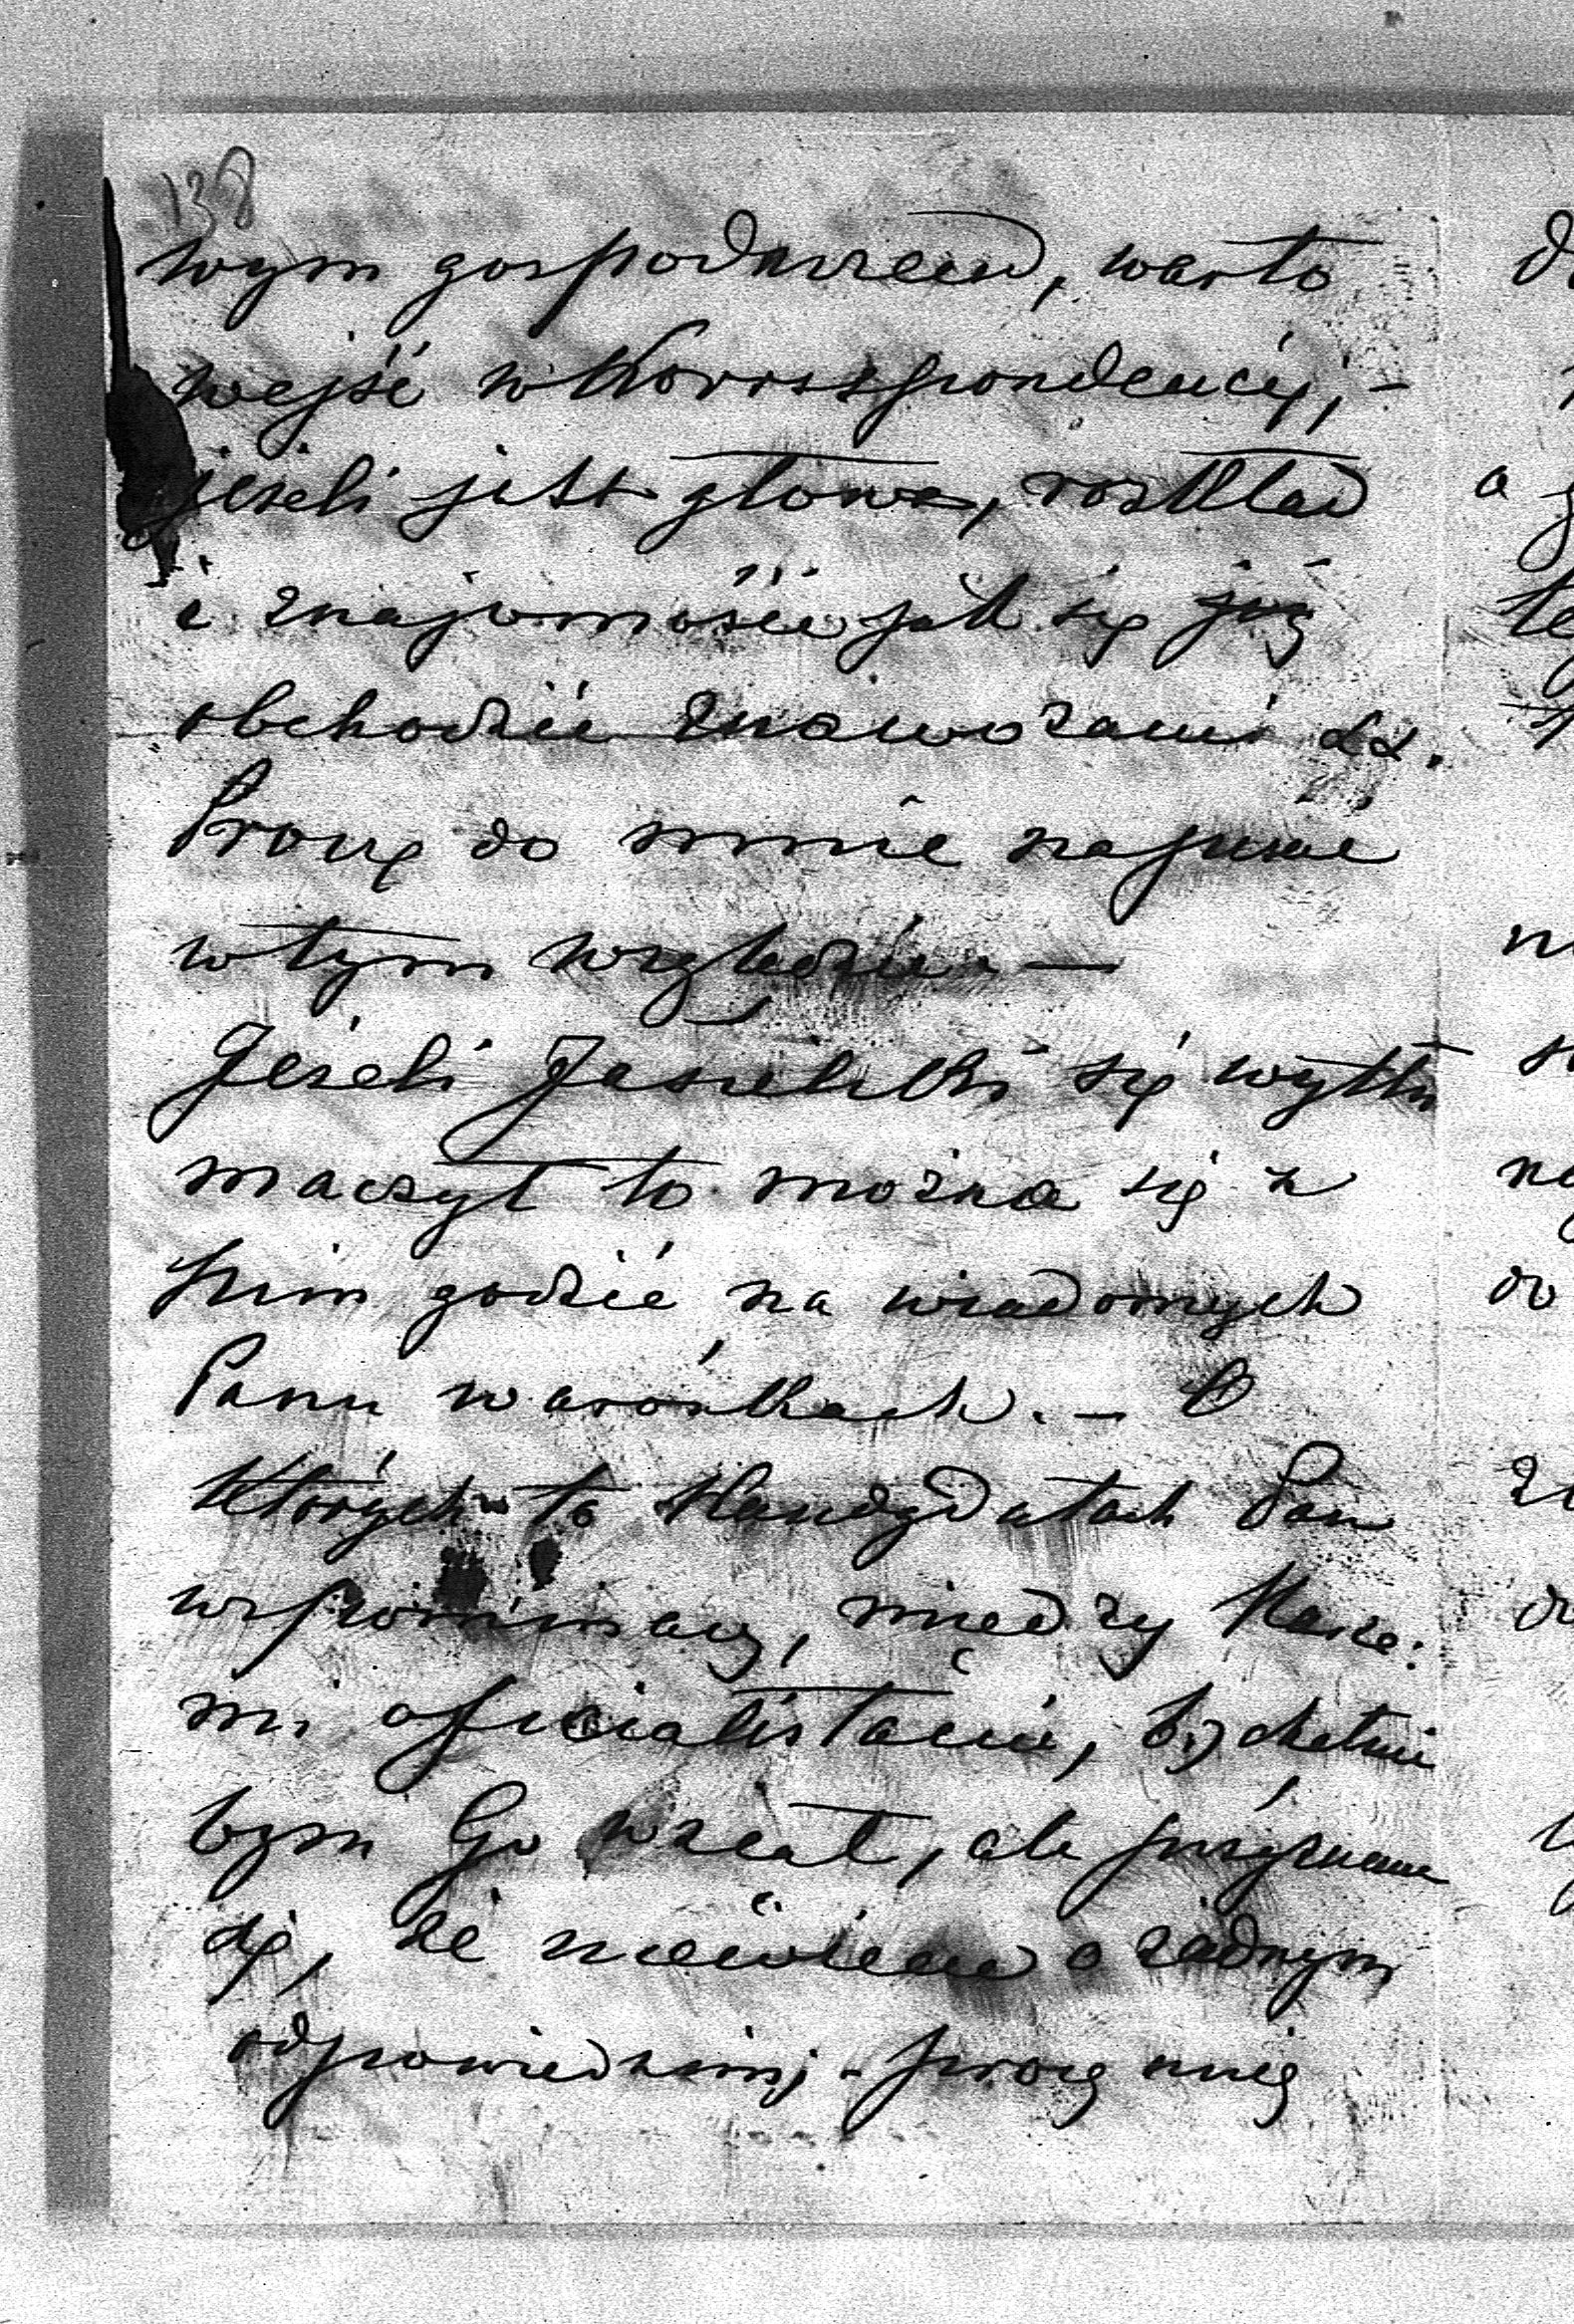 138
wym gospodarzem, warto
wejść w Korrespondencyj, -
jeżeli jest głowa, rozkład
i znajomość jak się
obchodzić z nawozami &&.
Proszę do mnie napisać
w tym względzie. —
Jeżeli Jasielski się wytłu
maczył to można się z
nim godzić na wiadomych
Panu warónkach. - O
których to Kandydatach Pan
wspominasz, między
mi oficialistami, chętnie
bym Go wziął, ale przyznam
się, że niewiem o żadnym
odpowiednim, - proszę mię